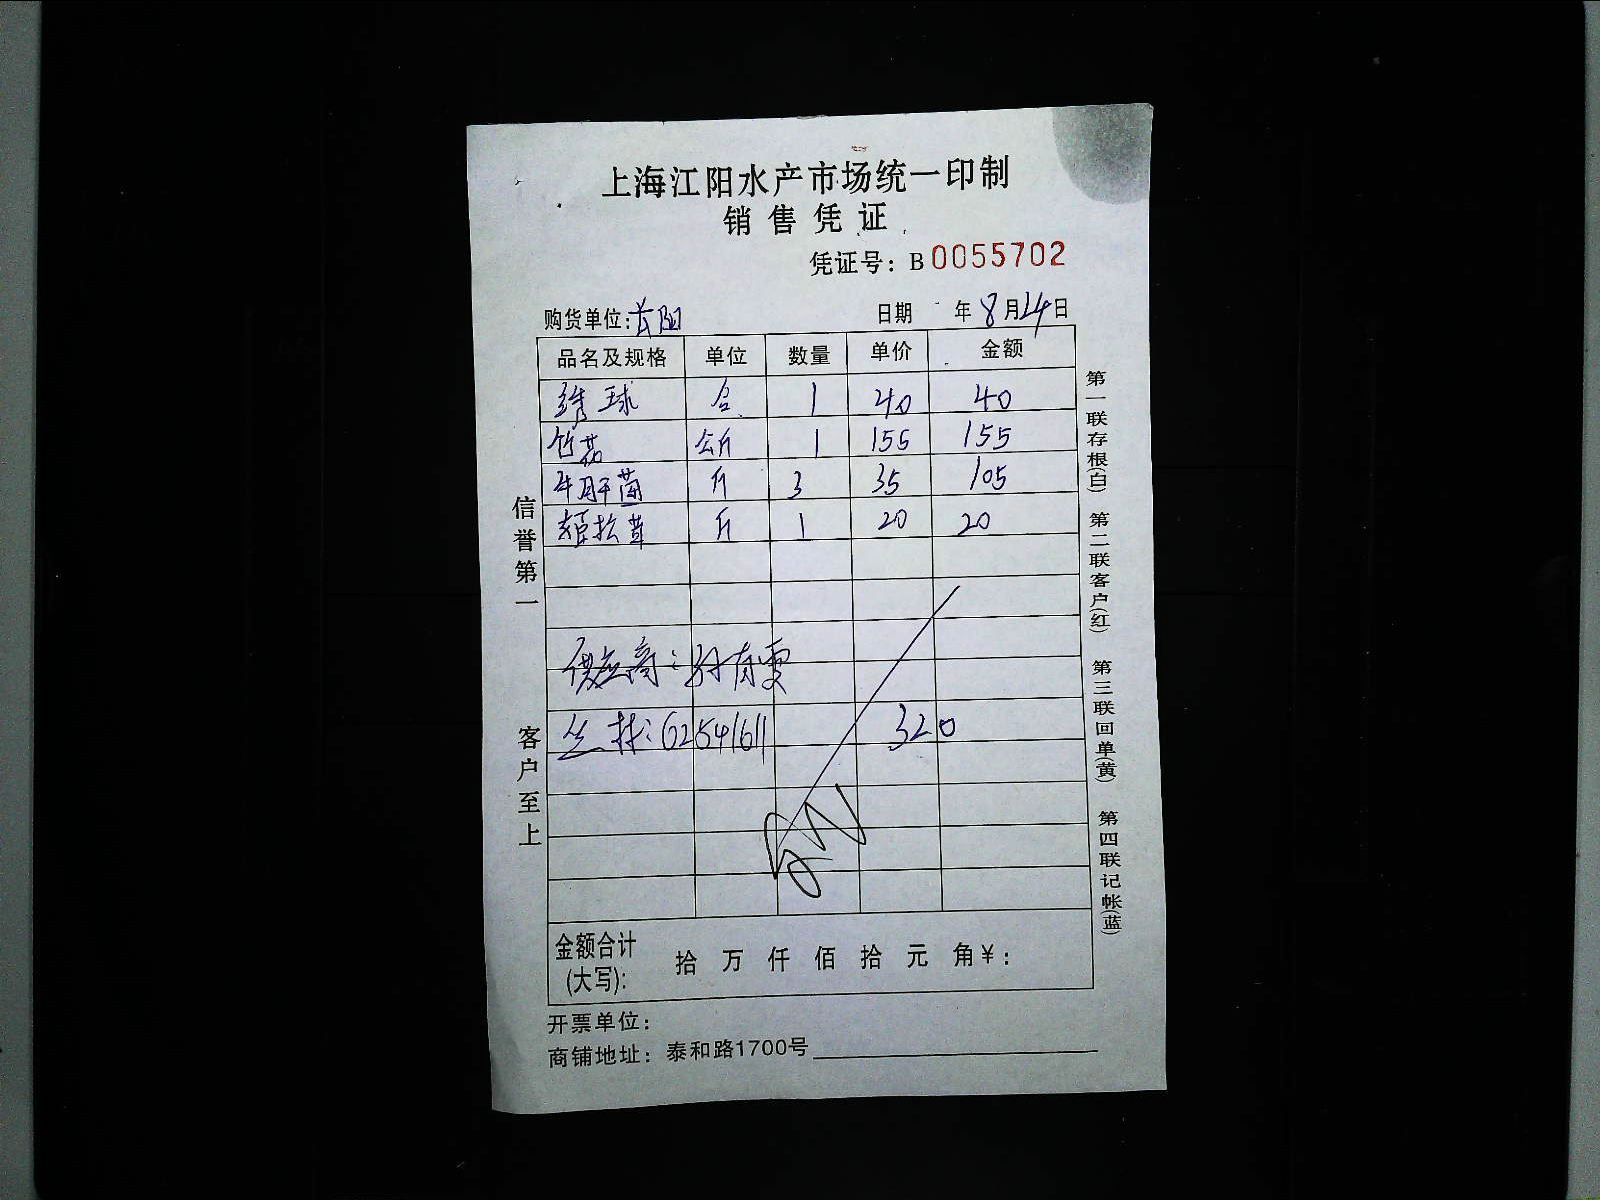 上海江阳水产市场统一印制
销售凭证
凭证号：B0055702
购货单位： 日期 年8月24日
品名及规格 单位 数量 单价 金额
绣球 合 1 40 40
竹荪 公斤 1 155 155
牛肝菌 斤 3 35 105
姬松茸 斤 1 20 20
供应商：孙有雯
62541611 320
金额合计(大写)： 拾 万 仟 佰 拾 元 角￥：
开票单位：
商铺地址：泰和路1700号
信誉第一
客户至上
第一联存根(白)
第二联客户(红)
第三联回单(黄)
第四联记帐(蓝)